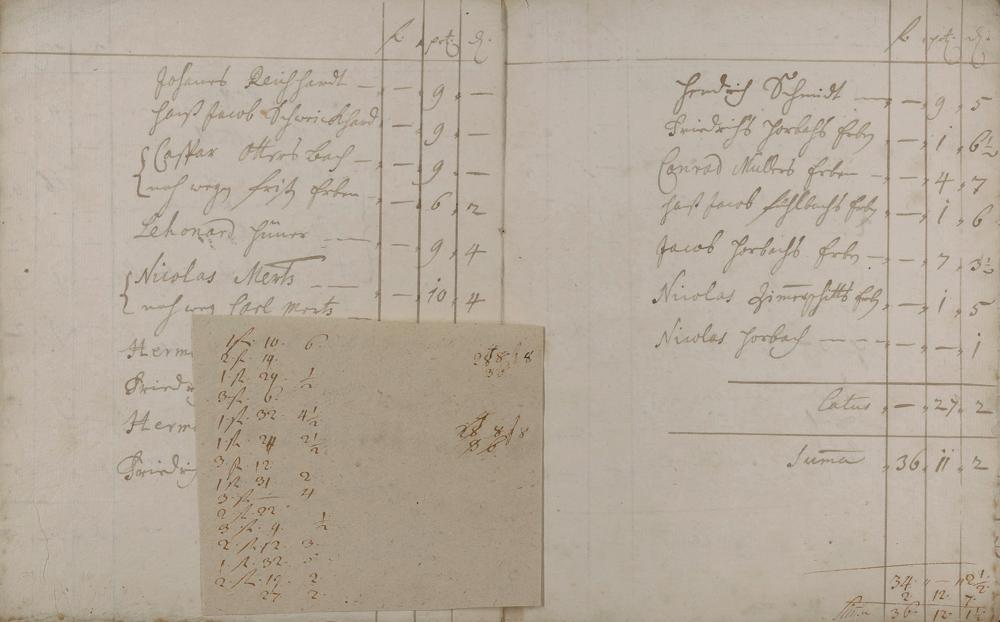 fl. pt. d.
Johanes Reichhardt — — 9 —
Hanß Jacob Schweickhard — 9 —
Caspar Otters bach — — 9 —
noch wegen Fritz Erben — — 6 2
Lehonard Hüner — — 9 4
Nicolas Merts — — 10 4
noch weg Carl Merts
Herm
Friedr
Herm
Friedri
1 fl. 10. 6
2 fl. 19.
1 fl. 29. ½
3 fl. 6.
1 fl. 32. 4½
1 fl. 24 2½
3 fl. 12.
1 fl. 31 2
3 fl. — 4
2 fl. 22.
3 fl. 9. ½
2 fl. 12. 3.
1 fl. 32.
2 fl. 19. 2
27 2
fl. pt. d.
Hendrich Schmidt — — 9 5
Friedrichs Horbachs Erben — 1 6½
Conrad Müllers Erben — — 4 7
Hanß Jacob Ählbachs Erben — 1 6
Jacob Horbachs Erben — — 7 3½
Nicolas Erben — 1 5
Nicolas Horbach — — — — 1
Latus — 27 2
Suma 36 11 2
34 — 2½
2. 12. 7.
36 12 1½